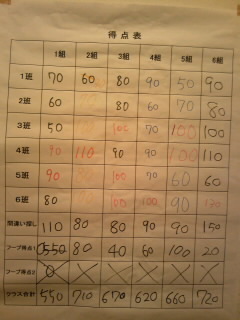 得点表
1組 2組 3組 4組 5組 6組
1班 70 60 80 90 50 90
2班 60 80 60 70 80
3班 50 100 70 100 100
4班 90 110 90 90 100 110
5班 90 100 70 60 60
6班 80 100 100 90
間違い探し 110 80 80 90 90 150
フープ得点1 0550 80 40 60 100 20
フープ得点2 0
クラス合計 550 710 670 620 660 720